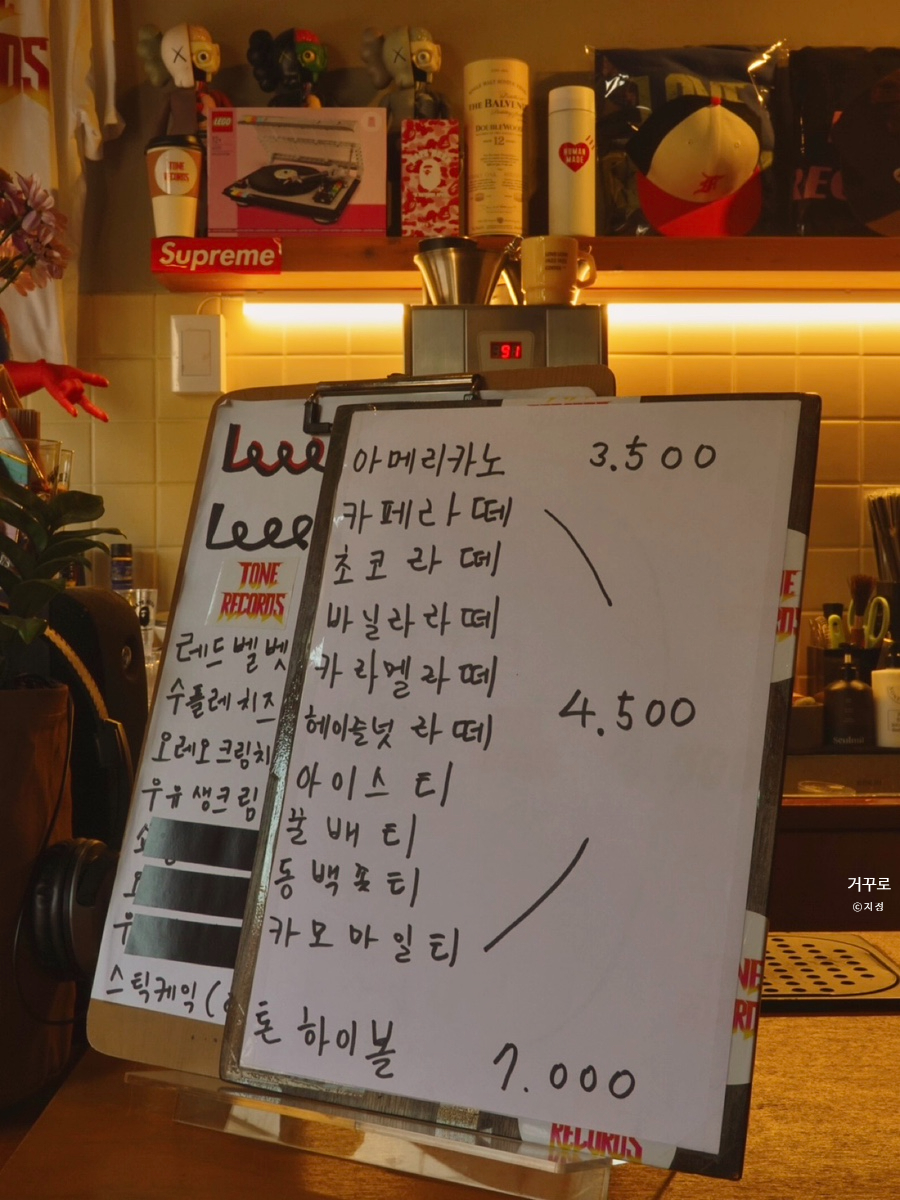 LEGO
TONE
RECORDS
THE BALVENIE
DOUBLEWOOD
12
HUMAN
MADE
Supreme
91
아메리카노 3.500
카페라떼
초코라떼
바닐라라떼
카라멜라떼
헤이즐넛 라떼
4.500
아이스티
꿀배티
동백꽃티
카모마일티
톤 하이볼 7.000
TONE
RECORDS
레드벨벳
수플레치즈
오레오크림치
우유생크림
스틱케익
RECORDS
거꾸로
©지성